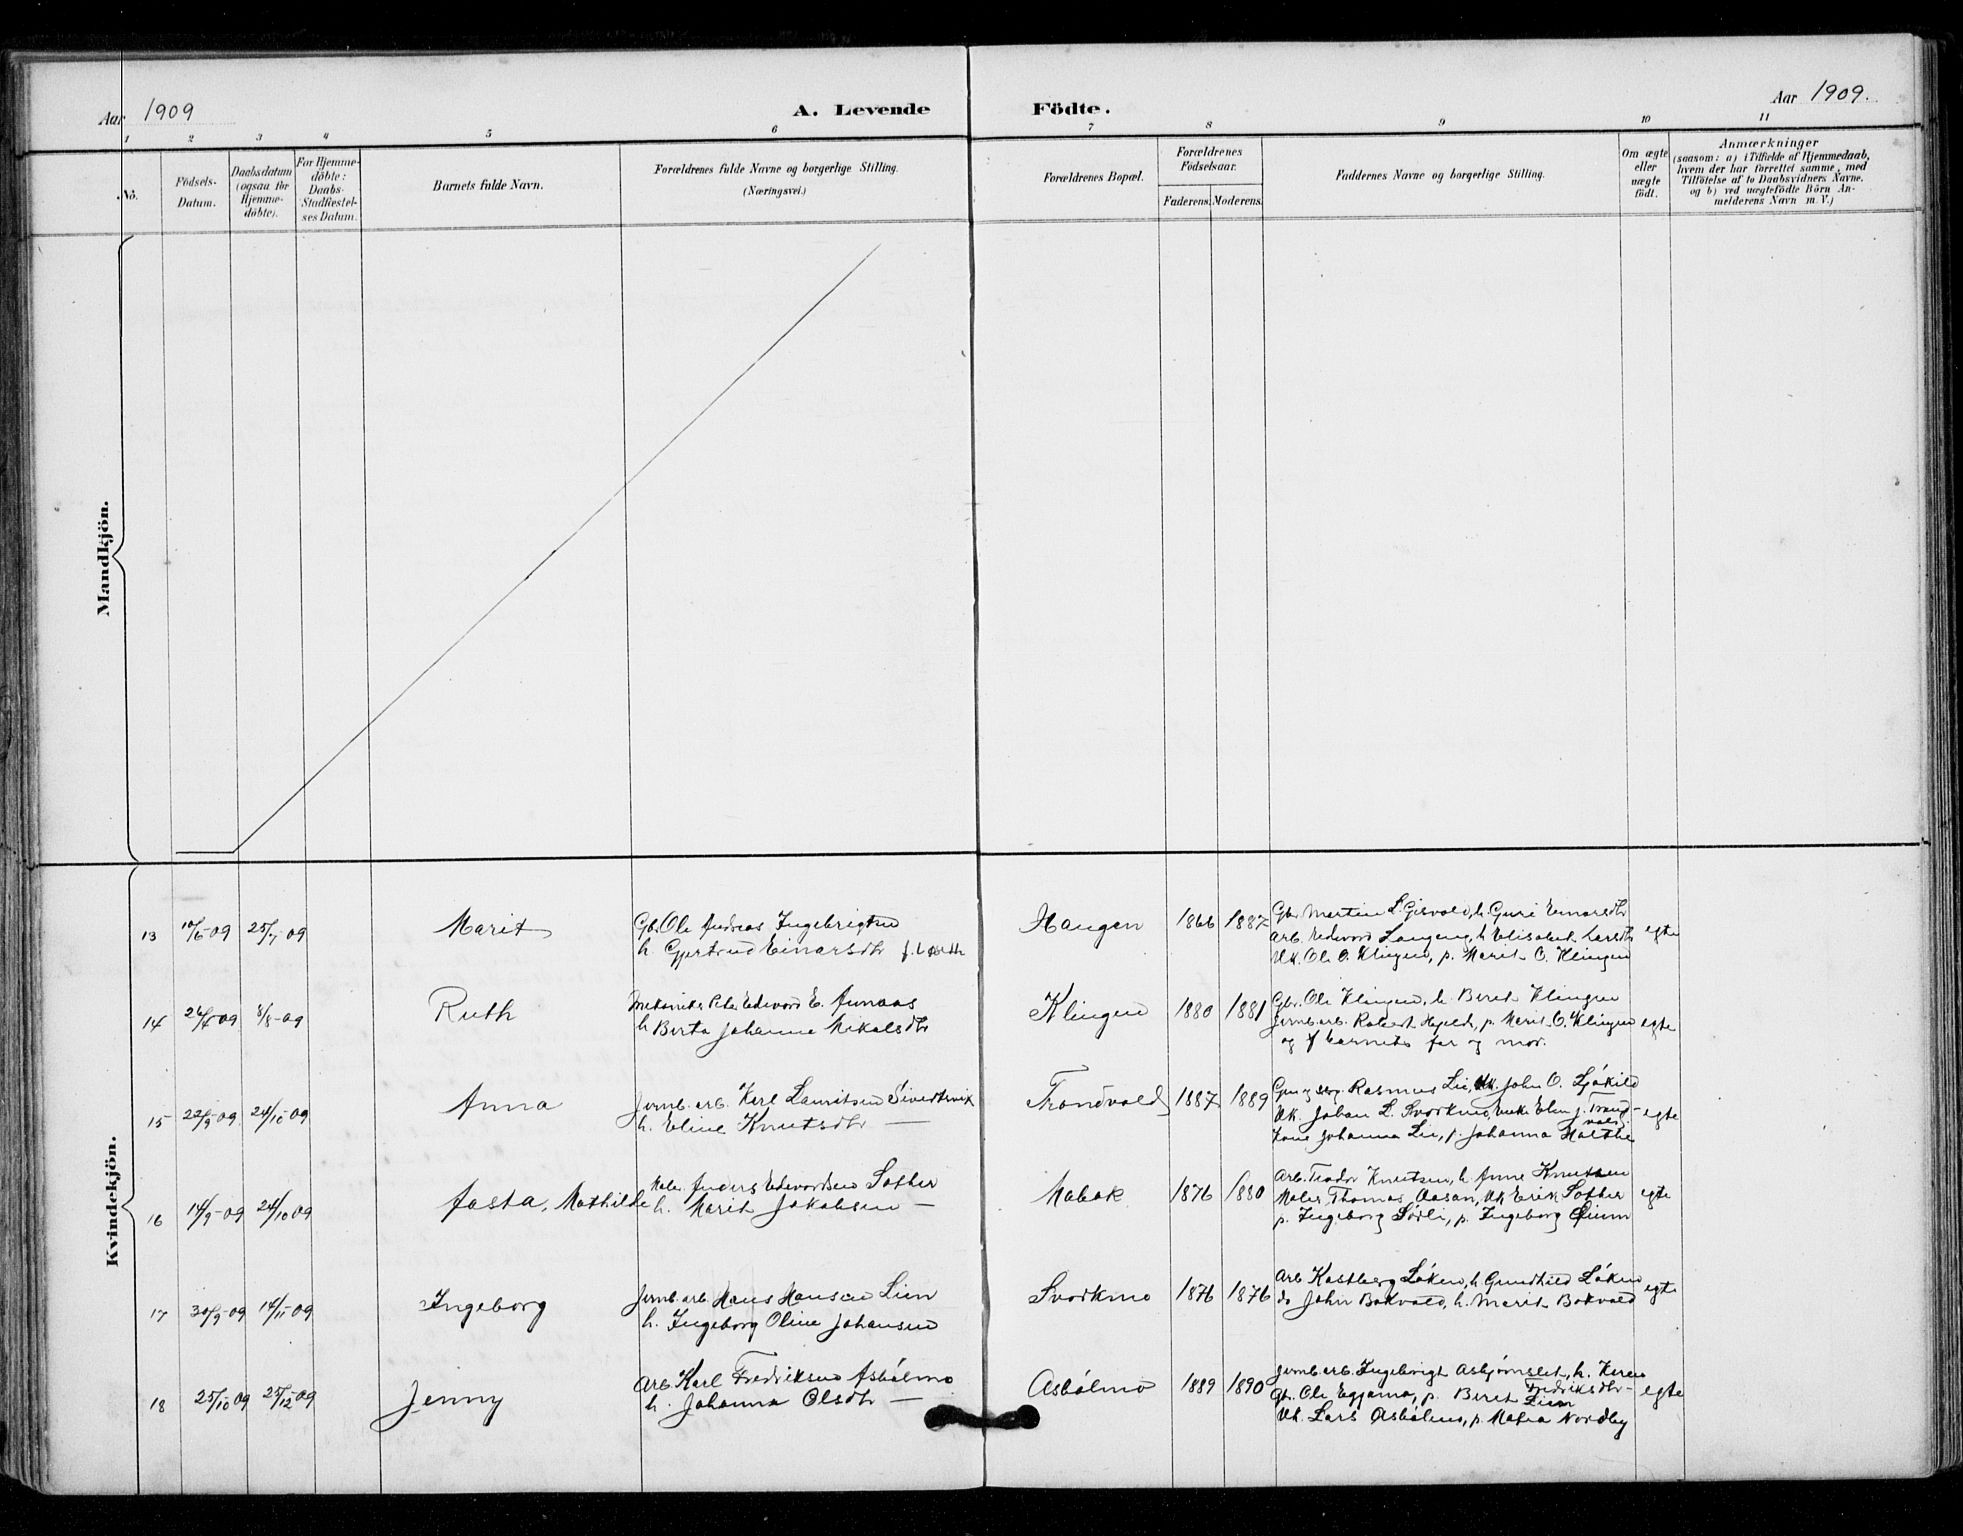 Aar 1909
A. Levende Födte.
Aar 1909.
1 2 3 4 5 6 7 8 9 10 11
No.
Födsels-
Datum.
Daabsdatum
(ogsaa for
Hjemme-
döbte).
For Hjemme-
döbte:
Daabs-
Stadfæstel-
ses Datum.
Barnets fulde Navn.
Forældrenes fulde Navne og borgerlige Stilling.
(Næringsvei.)
Forældrenes Bopæl.
Forældrenes
Födselsaar.
Faderens. Moderens.
Faddernes Navne og borgerlige Stilling.
Om ægte
eller
uægte
födt.
Anmærkninger
(saasom: a) i Tilfælde af Hjemmedaab,
hvem der har forrettet samme, med
Tilföielse af to Daabsvidners Navne.
og b) ved uægtefödte Börn An-
melderens Navn m. V.)
Mandkjön.
Kvindekjön.
13 10/6-09 25/7-09 Marit
Gb. Ole Andreas Ingebrigtsen
h. Gjertrud Einarsdtr
Haugen 1866 1887
Gbr. Martin L. Gisvold, h. Guri Einarsdtr
Arb. Edvard Langeng, h. Elisabet Larsdtr
Uk. Ole O. Klingen, p. Marit O. Klingen
egte
14 8/8-09 Ruth
Edvard E. Aunaas
h. Berta Johanna Mikalsdtr
Klingen 1880 1881
Gbr. Ole Klingen, h. Beret Klingen
Jernb. arb. Robert p. Marit O. Klingen
og barnets far og mor.
egte
15 22/9-09 24/10-09 Anna
Jernb. arb. Karl Lauritsen Sivertsvik
h. Eline Knutsdtr —
Trondvold 1887 1889
Rasmus Lie, Uk. John O.
Uk. Johan L. Svorkmo,
Johanna Lie, p. Johanna
egte
16 14/9-09 24/10-09 Aasta, Mathilde
Maler Anders Edvardsen Sother
h. Marit Jakobsen —
Mobak 1876 1880
Arb. Teodor Knutsen, h. Anne Knutsen
Maler Thomas Aasan, Uk Erik Sother
p. Ingeborg Sørli, p. Ingeborg
egte
17 30/9-09 14/11-09 Ingeborg
Jernb. arb Hans Hansen Lien
h. Ingeborg Oline Johansen
Svorkmo 1876 1876
Arb Kastberg Løken, h Gunhild Løken
do John Bakvold, h. Marit Bakvold
egte
18 25/10-09 25/12-09 Jenny
Arb. Karl Fredriksen Asbølmo
h. Johanna Olsdtr —
Asbølmo 1889 1890
Jernb arb. Ingebrigt h. Karen
Fredriksdtr-
Gb. Ole p. Beret Lien
Uk. Lars Asbølmo, p. Nordby
egte